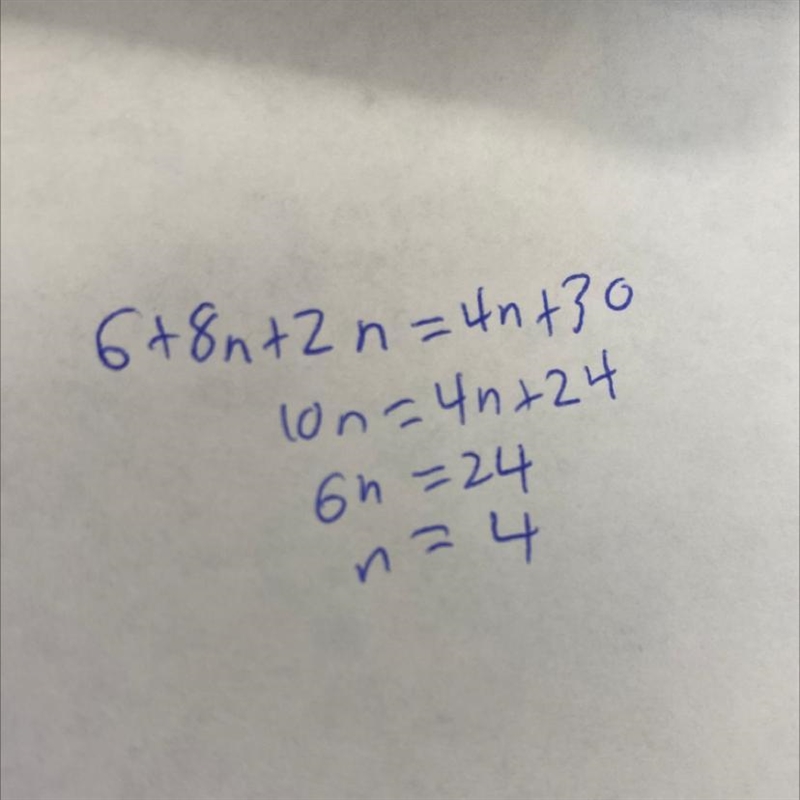 6+8n+2n=4n+30
10n=4n+24
6n=24
n=4